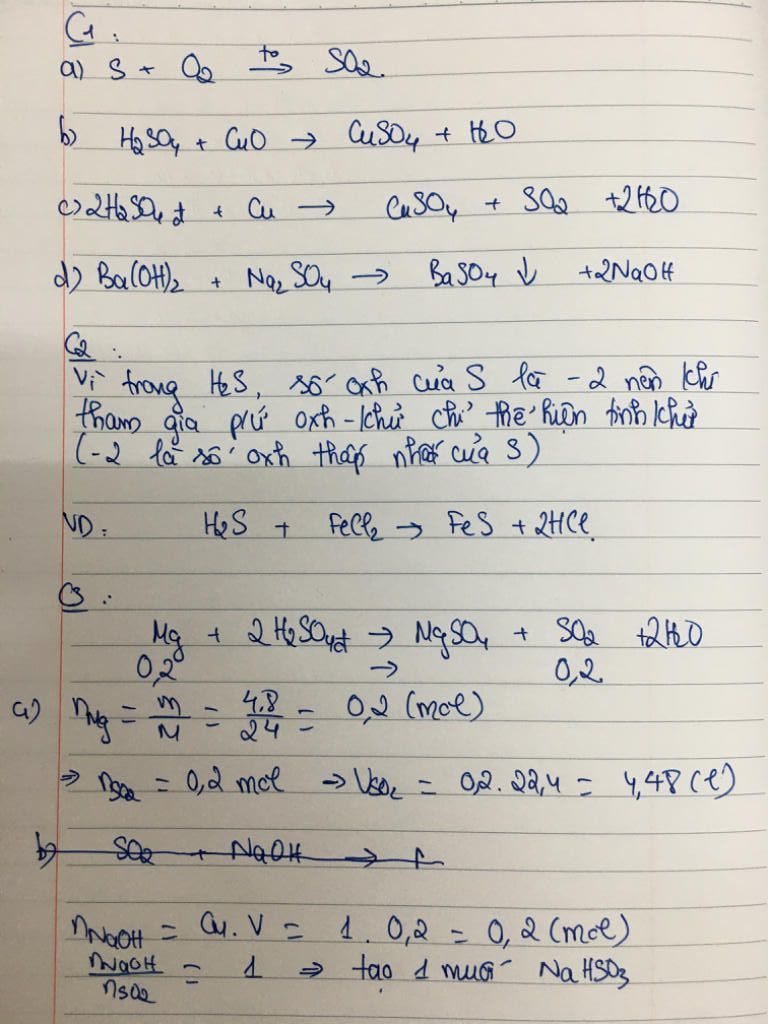 C1 :
a) S + O2 →(t°) SO2.
b) H2SO4 + CuO → CuSO4 + H2O
c) 2H2SO4 đ + Cu → CuSO4 + SO2 + 2H2O
d) Ba(OH)2 + Na2SO4 → BaSO4 ↓ + 2NaOH
C2 :
Vì trong H2S, số oxh của S là -2 nên khi
tham gia pứ oxh-khử chỉ thể hiện tính khử
(-2 là số oxh thấp nhất của S)
VD: H2S + FeCl2 → FeS + 2HCl.
C3 :
Mg + 2H2SO4đ → MgSO4 + SO2 + 2H2O
0,2 → 0,2
a) nMg = m/M = 4,8/24 = 0,2 (mol)
⇒ nSO2 = 0,2 mol → VSO2 = 0,2 . 22,4 = 4,48 (l)
b) SO2 + NaOH →
nNaOH = CM . V = 1 . 0,2 = 0,2 (mol)
nNaOH/nSO2 = 1 ⇒ tạo 1 muối NaHSO3